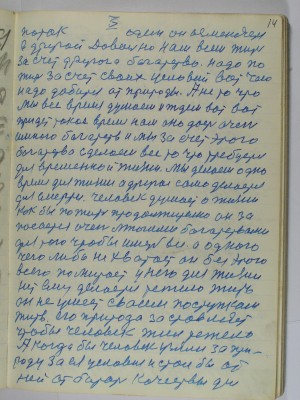 14
один он обменяем
а другой Довольно нам всем жит
за счет другого богатство. надо по
жит за счет своих условий вот чего
надо добится от природы. А не то что
мы все время думаем и ждем вот вот
придут такое время нам оно даст очен
много богатств и мы за счет этого
богатства сделаем все то что требуется
для временной жизни. мы делаем одно
время для жизни а другая само делается
для смерти. человек думает о жизни
как бы пожить продолжително он за
пасается очен многими богатствами
для того чтобы у него и одного
чего либо не хватает он без этого
всего помирает у него для жизни
нет ему делается тежело жить
он не умеет своем поступкам
жить, его природа заставляет
чтобы человек жил тежело
А когда бы человек взялся за при-
роду за ея условия и стал бы от
ней от батар качествы дл